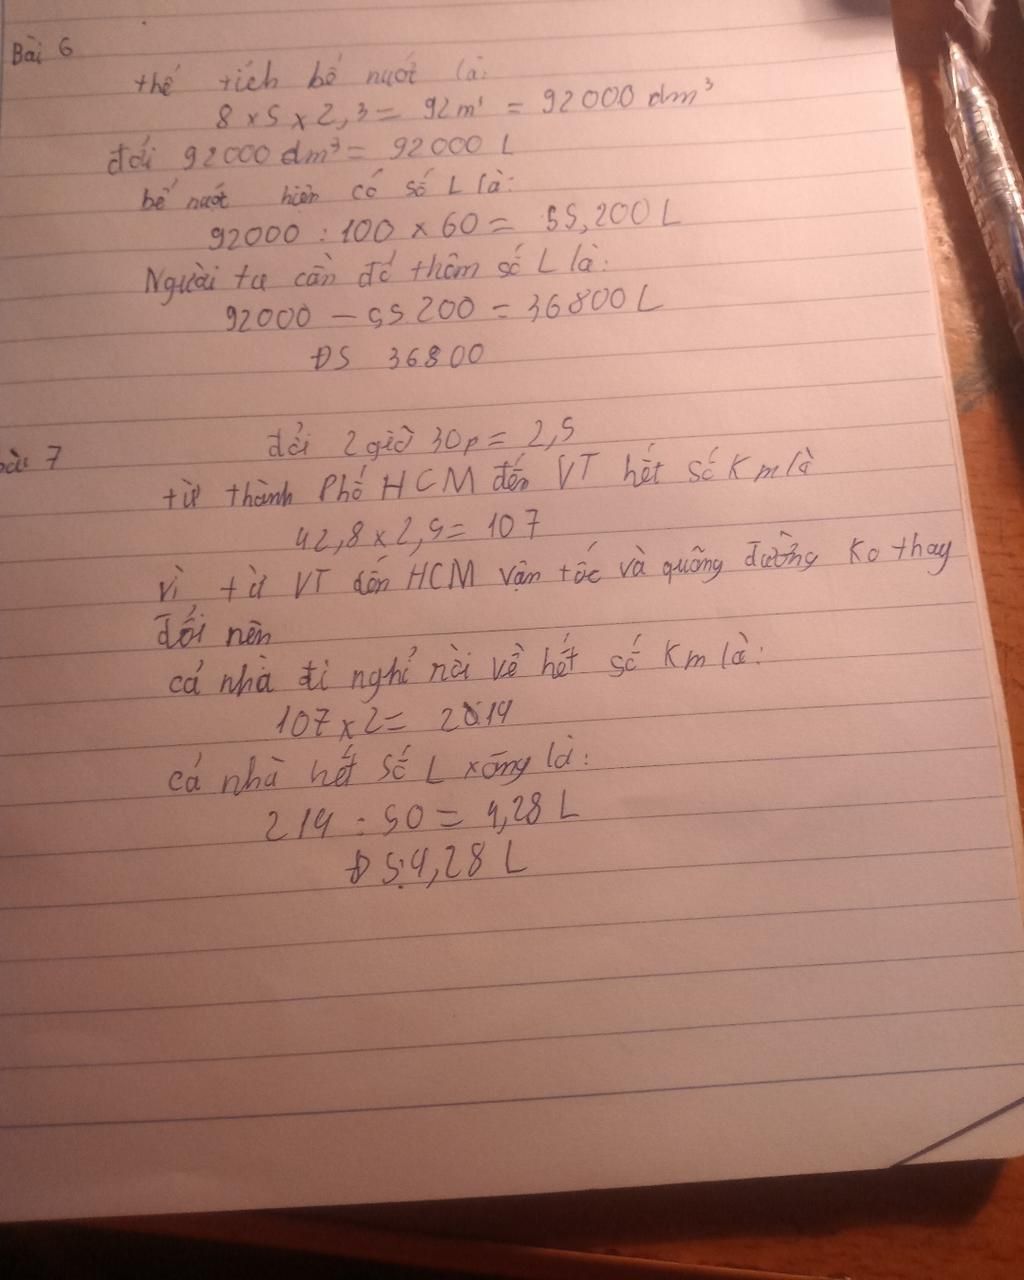 Bài 6
thế tích bế nước là:
8 x 5 x 2,3 = 92 m³ = 92000 dm³
đối 92000 dm³ = 92000 L
bế nước hiện có số L là:
92000 : 100 x 60 = 55,200 L
Người ta cần đố thêm số L là:
92000 - 55.200 = 36800 L
ĐS 36800
bài 7
đổi 2 giờ 30p = 2,5
từ thành Phố HCM đến VT hết số Km là
42,8 x 2,5 = 107
vì từ VT đến HCM vận tốc và quãng đường Ko thay
đổi nên
cả nhà đi nghỉ rồi về hết số Km là:
107 x 2 = 214
cả nhà hết số L xăng là:
214 : 50 = 4,28 L
ĐS: 4,28 L